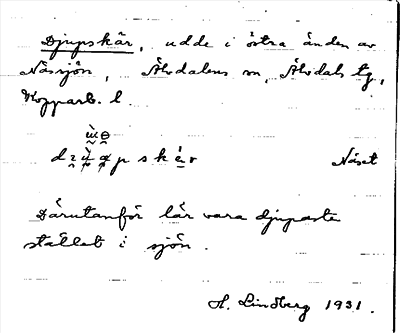 Djupskär, udde i östra änden av
Näsjön, Älvdalens sn, Älvdals tg,
Kopparb. l.
Näset
Därutanför lär vara djupaste
stället i sjön.
H. Lindberg 1931.